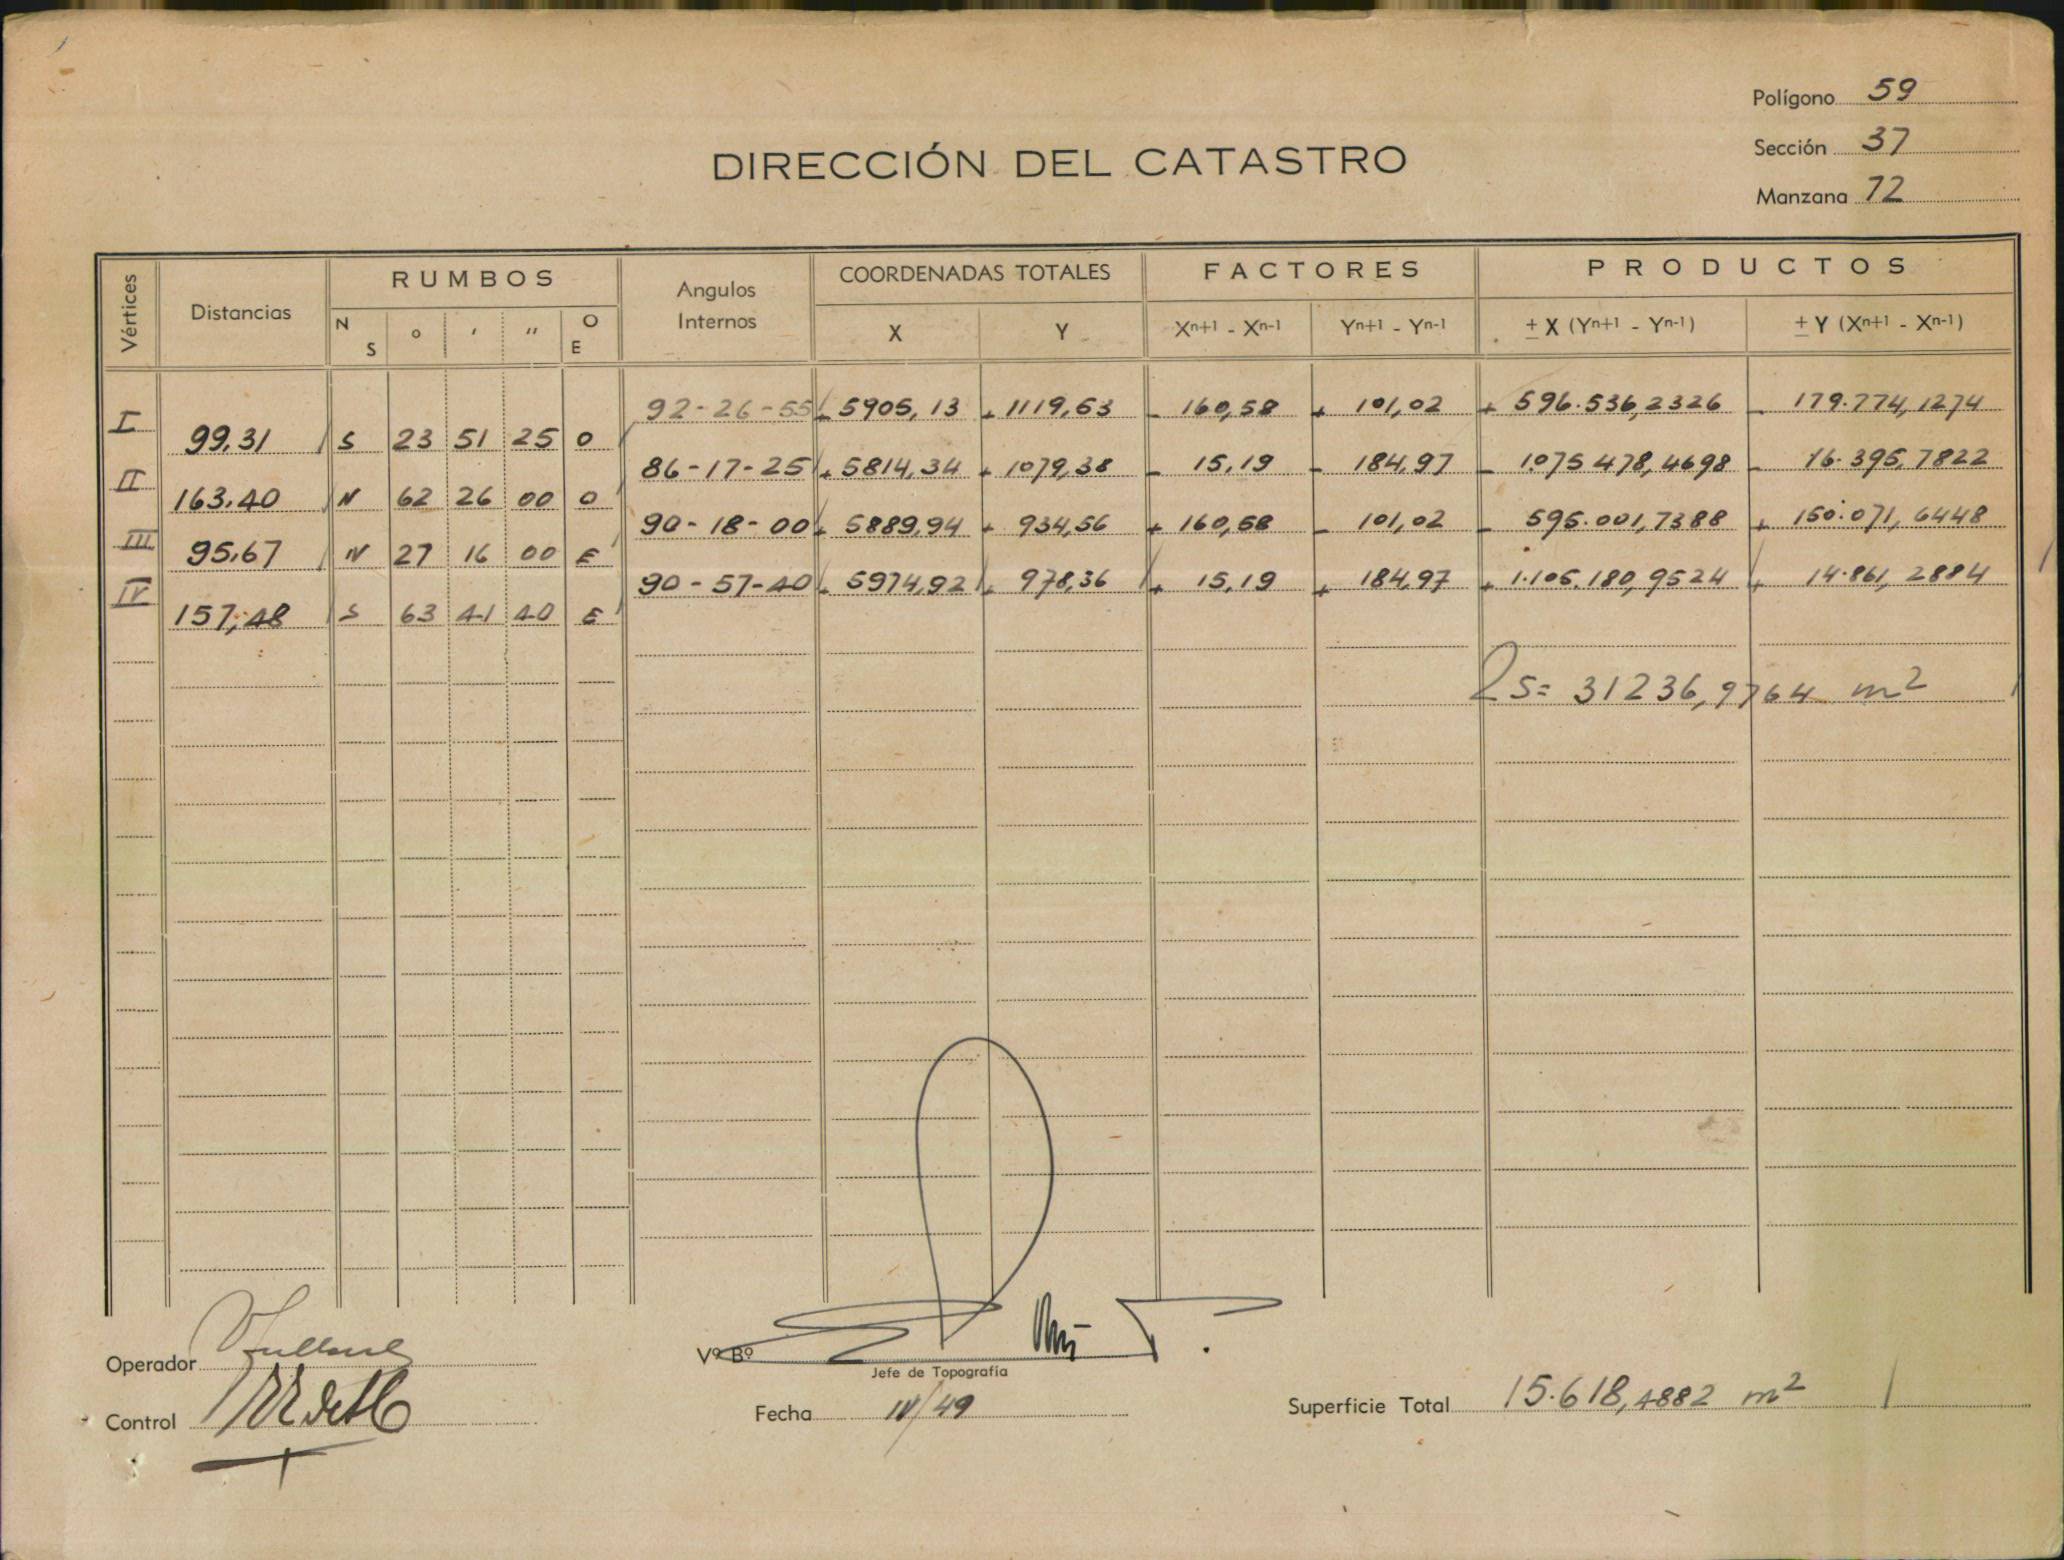 Polígono 59
Sección 37
Manzana 72
DIRECCIÓN DEL CATASTRO
Vértices Distancias RUMBOS Angulos Internos COORDENADAS TOTALES FACTORES PRODUCTOS
N S o ' " O E X Y Xn+1 - Xn-1 Yn+1 - Yn-1 ± X (Yn+1 - Yn-1) ± Y (Xn+1 - Xn-1)
I 92-26-55 + 5905,13 + 1119,53 - 160,58 + 101,02 + 596.536,2326 - 179.774,1274
99,31 S 23 51 25 O
II 86-17-25 + 5814,34 + 1079,38 - 15,19 - 184,97 - 1.075 478,4698 - 16.395,7822
163,40 N 62 26 00 O
III 90-18-00 + 5889,94 + 934,56 + 160,58 - 101,02 - 595.001,7388 + 150.071,6448
95,67 N 27 16 00 E
IV 90-57-40 + 5974,92 + 978,36 + 15,19 + 184,97 + 1.105.180,9524 + 14.861,2884
157,48 S 63 41 40 E
2S= 31236,9764 m2
Operador
Vº Bº
Jefe de Topografía
Control
Fecha IV/49
Superficie Total 15.618,4882 m2